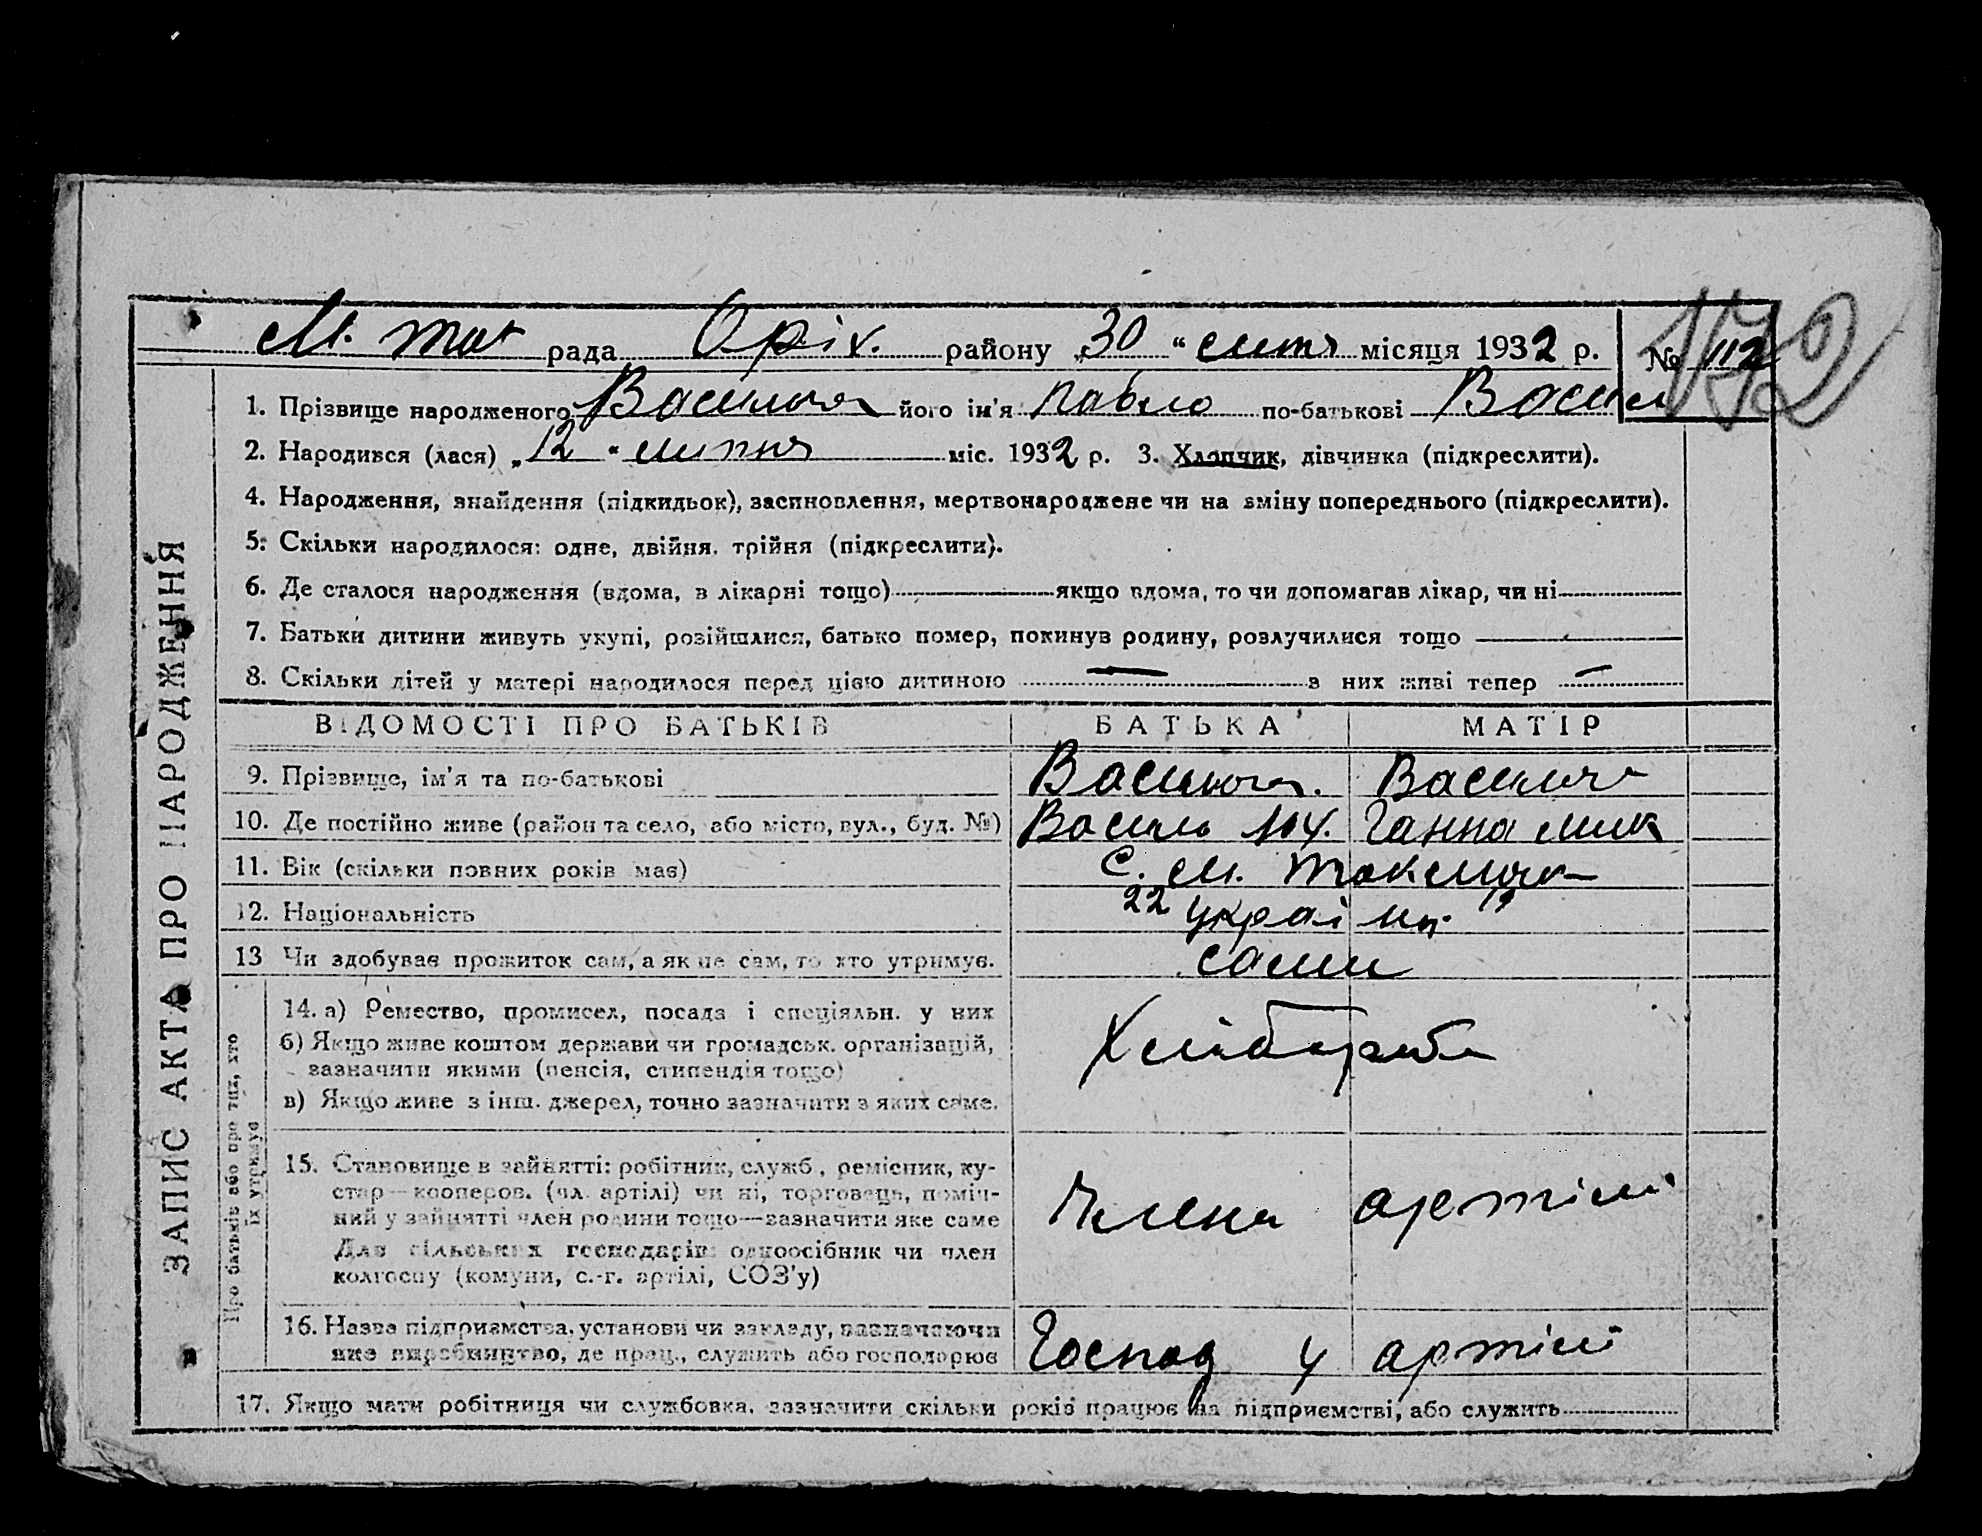 М. Ток рада Оріх. району „30“ липня місяця 1932 р. № 112
172
1. Прізвище народженого його ім'я Павло по-батькові Васил
2. Народився (лася) „12“ липня міс. 1932 р. 3. Хлопчик, дівчинка (підкреслити).
4. Народження, знайдення (підкидьок), засиновлення, мертвонароджене чи на зміну попереднього (підкреслити).
5. Скільки народилося: одне, двійня, трійня (підкреслити).
6. Де сталося народження (вдома, в лікарні тощо) якщо вдома, то чи допомагав лікар, чи ні
7. Батьки дитини живуть укупі, розійшлися, батько помер, покинув родину, розлучилися тощо
8. Скільки дітей у матері народилося перед цією дитиною — з них живі тепер —
ЗАПИС АКТА ПРО НАРОДЖЕННЯ
ВІДОМОСТІ ПРО БАТЬКІВ БАТЬКА МАТІР
9. Прізвище, ім'я та по-батькові
10. Де постійно живе (район та село, або місто, вул., буд. №) Василь Ганна Мик
11. Вік (скільки повних років має) С. М. Токмачка
12. Національність 22 україн. 19
13 Чи здобуває прожиток сам, а як не сам, то хто утримує. сами
Про батьків або про тих, хто їх утримує
14. а) Ремество, промисел, посада і спеціяльн. у них Хліборобы
б) Якщо живе коштом держави чи громадськ. організацій,
зазначити якими (пенсія, стипендія тощо)
в) Якщо живе з інш. джерел, точно зазначити з яких саме.
15. Становище в зайнятті: робітник, служб., ремісник, ку-
стар—кооперов. (чл. артілі) чи ні, торговець, поміч-
ний у зайнятті член родини тощо—зазначити яке саме Члени артілі
Для сільських господарів: одноосібник чи член
колгоспу (комуни, с.-г. артілі, СОЗ'у)
16. Назва підприємства, установи чи закладу, зазначаючи
яке виробництво, де прац., служить або господарює Господ у артілі
17. Якщо мати робітниця чи службовка, зазначити скільки років працює на підприємстві, або служить